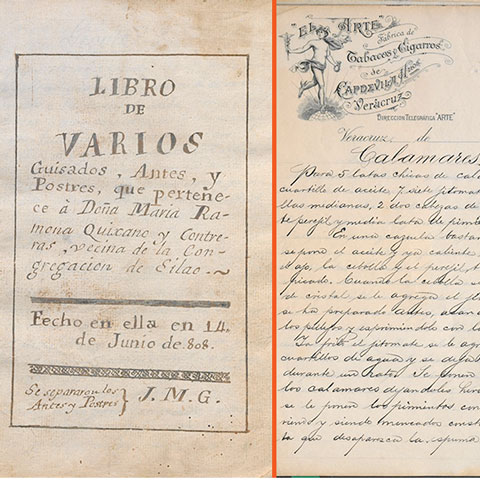 LIBRO
DE
VARIOS
Guisados, Antes, y
Postres, que pertene-
ce à Doña Maria Ra-
mona Quixano y Contre-
ras, vecina de la Con-
gregacion de Silao.~
Fecho en ella en 14,
de Junio de 808.
Se separaron los
Antes y Postres} J. M. G.
"EL ARTE"
Fabrica de
Tabacos y Cigarros
de
CAPDEVILA Hnos
Veracruz
DIRECCION TELEGRAFICA "ARTE"
Veracruz de
Calamares
Para 5 latas chicas de cala
cuartillo de aceite, 7 siete jitomat
llas medianas, 2 dos cabezas de
te perejil y media lata de pimie
En una cazuela bastan
se pone el aceite y ya caliente
el ajo, la cebolla y el perejil,
picado. Cuando la cebolla se
de cristal se le agrega el ji
se ha preparado antes, asan
los pellejos y exprimiendolo con la
Ya frito el jitomate se le agre
cuartillos de agua y se deja
durante un rato. Se ponen
los calamares dejandoles hirv
se le ponen los pimientos con
viendo y siendo meneados const
ta que desaparezca la espuma